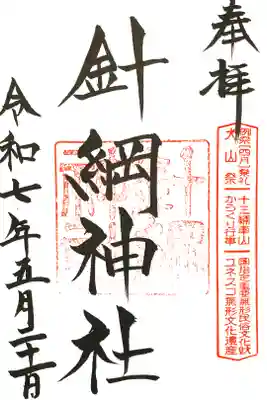 奉拝
例祭(四月)祭礼
犬山祭
十三輌車山
からくり行事
国指定重要無形民俗文化財
ユネスコ無形文化遺産
針綱神社
令和七年五月二十一日